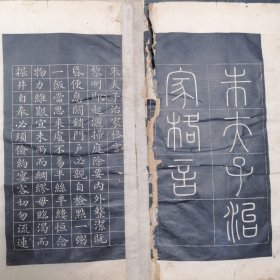 朱夫子治
家格言
朱夫子治家格言
黎明即起灑掃庭除要內外整潔既
昏便息關鎖門戶必親自檢點一粥
一飯當思來處不易半絲半縷恆念
物力維艱宜未雨而綢繆毋臨渴而
掘井自奉必須儉約宴客切勿流連